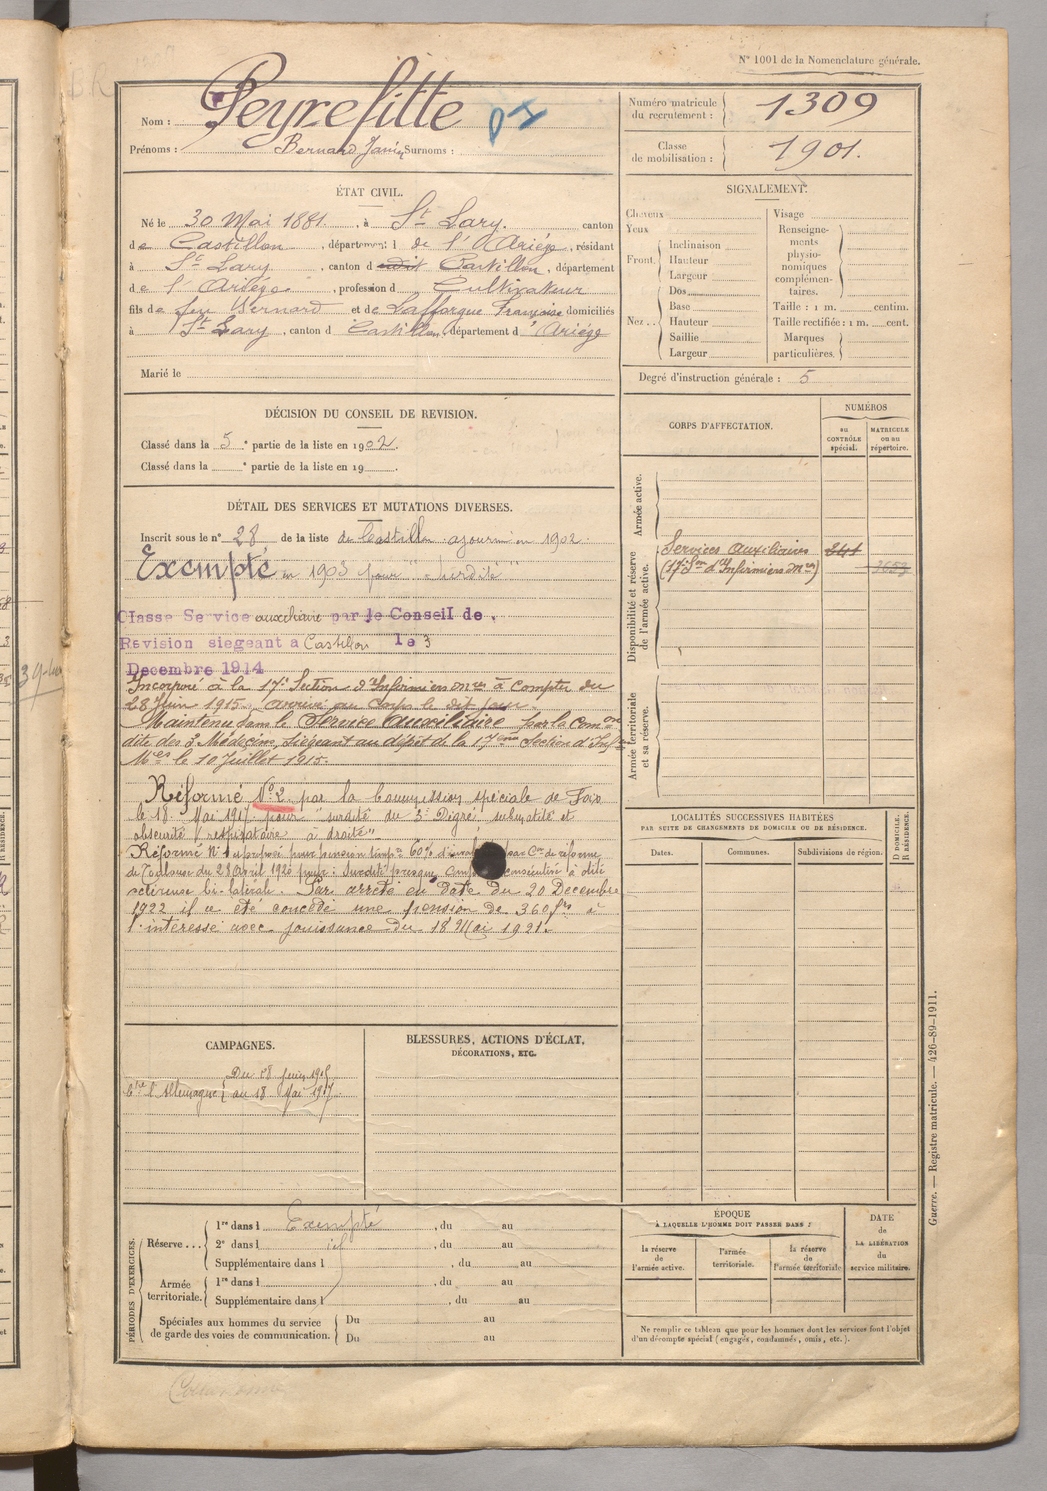 N° 1001 de la Nomenclature générale.
Nom : Peyrefitte
Prénoms : Bernard Surnoms :
Numéro matricule du recrutement : 1309
Classe de mobilisation : 1901.
ÉTAT CIVIL.
Né le 30 Mai 1881, à St Lary. canton
de Castillon, département de l'Ariège, résidant
à St Lary, canton d Castillon, département
de l'Ariège, profession d Cultivateur
fils de feu Bernard et de Lafforgue Françoise domiciliés
à St Lary, canton d Castillon, département d'Ariège
Marié le
SIGNALEMENT.
Cheveux
Yeux
Front.
Inclinaison
Hauteur
Largeur
Nez..
Dos
Base
Hauteur
Saillie
Largeur
Visage
Renseigne-
ments
physio-
nomiques
complémen-
taires.
Taille : 1 m. centim.
Taille rectifiée : 1 m. cent.
Marques
particulières.
Degré d'instruction générale : 5
DÉCISION DU CONSEIL DE REVISION.
Classé dans la 5e partie de la liste en 1902.
Classé dans la e partie de la liste en 19 .
DÉTAIL DES SERVICES ET MUTATIONS DIVERSES.
Inscrit sous le n° 28 de la liste de Castillon ajourné en 1902.
Exempté en 1903 pour "surdité"
Classe Service auxiliaire par le Conseil de
Revision siegeant a Castillon le 3
Decembre 1914
Incorporé à la 17e Section d'Infirmiers mres à compter du
28 Juin 1915. arrivé au corps le dit jour.
Maintenu dans le Service Auxiliaire par la Comon
dite des 3 Médecins, siégeant au dépôt de la 17eme Section d'Infers
Mres le 10 Juillet 1915.
Réformé N° 2 par la Commission spéciale de Foix
le 18 Mai 1917 pour "surdité du 3e Degré, submatité et
obscurité respiratoire à droite"
Réformé N° 1 et proposé pour pension tempre 60% par Con de réforme
de Toulouse du 28 Avril 1920 pour : Surdité presque consécutive à otite
scléreuse bi-latérale. Par arrêté en date du 20 Decembre
1922 il a été concédé une pension de 360 frs à
l'intéressé avec jouissance du 18 Mai 1921.
CORPS D'AFFECTATION.
NUMÉROS
au
CONTRÔLE
spécial.
MATRICULE
ou au
répertoire.
Armée active.
Disponibilité et réserve
de l'armée active.
Services Auxiliaires
(17e Son d'Infirmiers mres)
Armée territoriale
et sa réserve.
LOCALITÉS SUCCESSIVES HABITÉES
PAR SUITE DE CHANGEMENTS DE DOMICILE OU DE RÉSIDENCE.
Dates.
Communes.
Subdivisions de région.
D DOMICILE.
R RÉSIDENCE.
CAMPAGNES.
Ctre l'Allemagne
Du 28 Juin 1915
au 18 Mai 1917
BLESSURES, ACTIONS D'ÉCLAT,
DÉCORATIONS, ETC.
PÉRIODES D'EXERCICES.
Réserve...
1re dans l Exempté, du au
2e dans l id, du au
Supplémentaire dans l , du au
Armée
territoriale.
1re dans l , du au
Supplémentaire dans l , du au
Spéciales aux hommes du service
de garde des voies de communication.
Du au
Du au
ÉPOQUE
À LAQUELLE L'HOMME DOIT PASSER DANS :
la réserve
de
l'armée active.
l'armée
territoriale.
la réserve
de
l'armée territoriale
DATE
de
LA LIBÉRATION
du
service militaire.
Ne remplir ce tableau que pour les hommes dont les services font l'objet
d'un décompte spécial (engagés, condamnés, omis, etc.).
Guerre. — Registre matricule. — 426-89-1911.